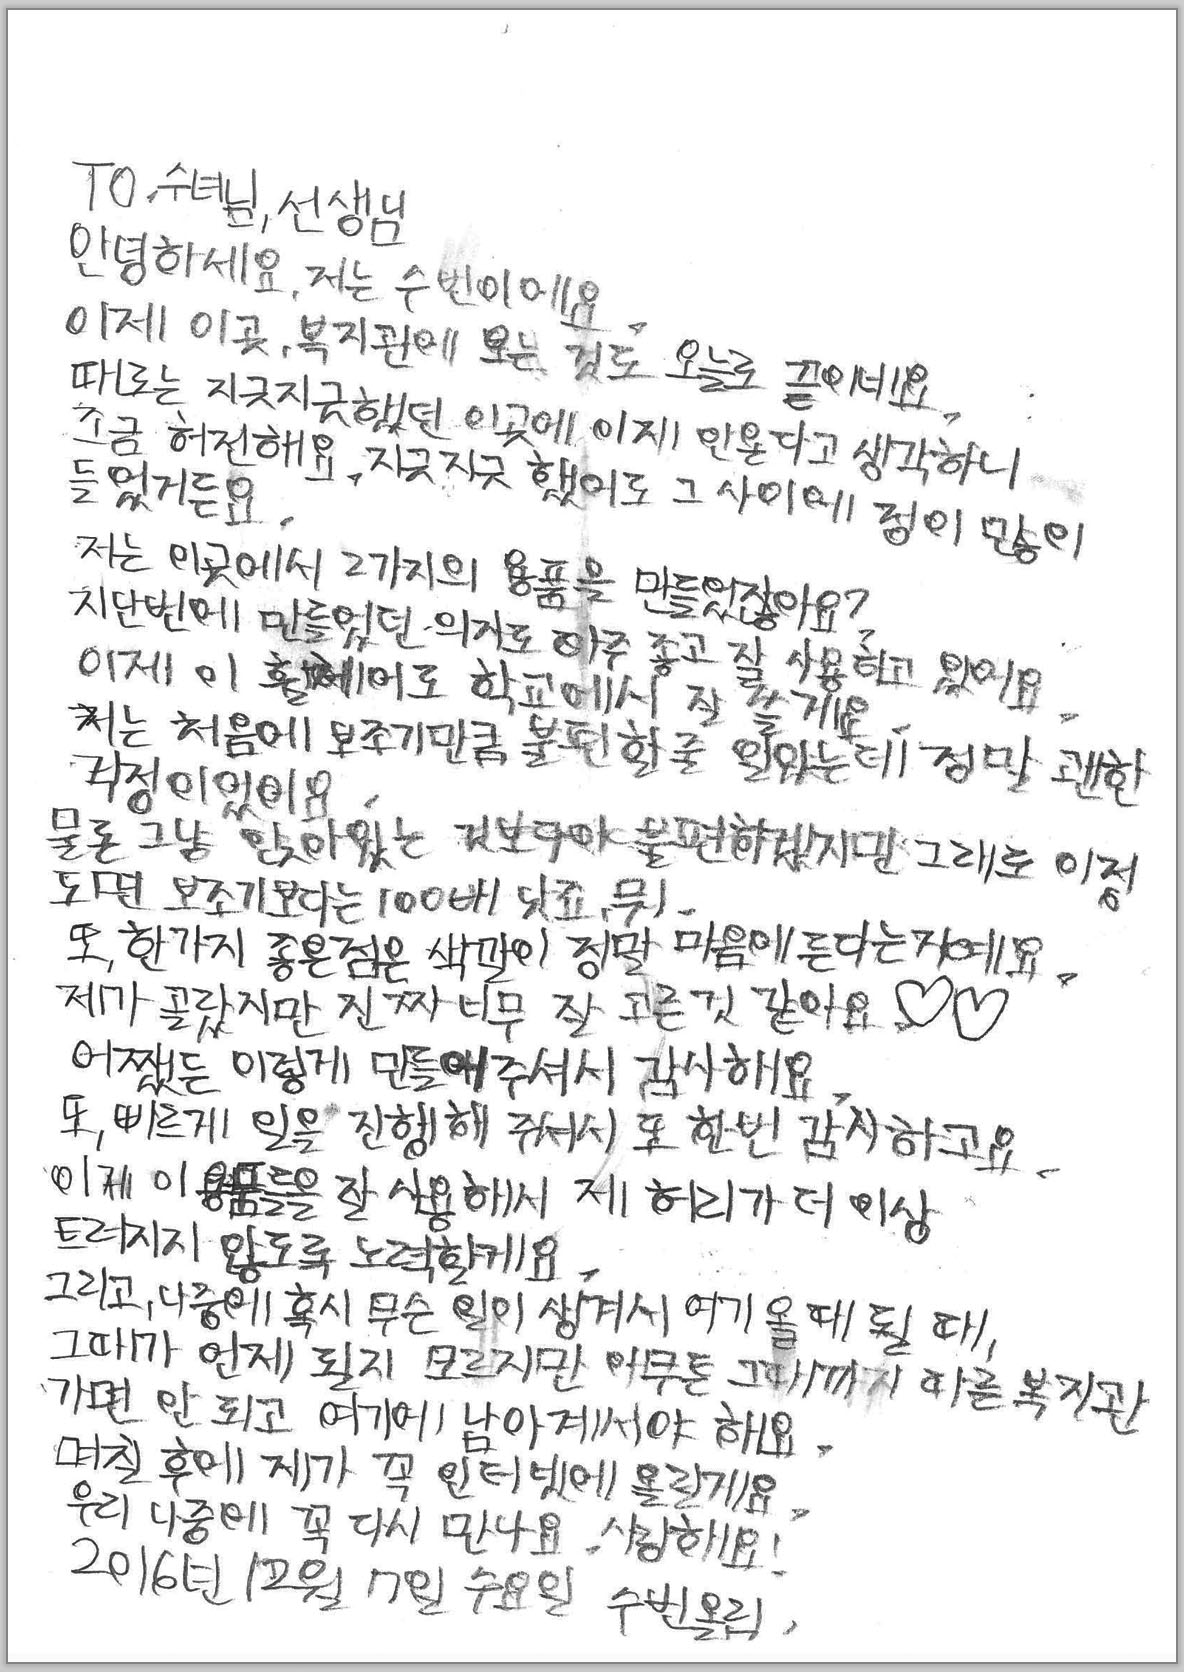 TO.수녀님,선생님
안녕하세요.저는 수빈이에요.
이제 이곳,복지관에 오는 것도 오늘로 끝이네요.
때로는 지긋지긋했던 이곳에 이제 안온다고 생각하니
조금 허전해요.지긋지긋 했어도 그 사이에 정이 많이
들었거든요.
저는 이곳에서 2가지의 용품을 만들었잖아요?
지단번에 만들었던 의자도 아주 좋고 잘 사용하고 있어요.
이제 이 휠체어로 학교에서 잘 쓸게요.
저는 처음에 보조기만큼 불편할줄 알았는데 정말 괜한
걱정이었어요.
물론 그냥 앉아있는 것보다야 불편하겠지만 그래도 이정
도면 보조기보다는 100배 낫죠,뭐.
또,한가지 좋은점은 색깔이 정말 마음에 든다는거예요.
제가 골랐지만 진짜 너무 잘 고른것 같아요.♡♡
어쨌든 이렇게 만들어주셔서 감사해요.
또,빠르게 일을 진행해 주셔서 또 한번 감사하고요.
이제 이 용품들을 잘 사용해서 제 허리가 더 이상
트러지지 않도록 노력할게요.
그리고,나중에 혹시 무슨 일이 생겨서 여기 올 때 될 때,
그때가 언제 될지 모르지만 아무튼 그때까지 다른 복지관
가면 안 되고 여기에 남아계셔야 해요.
며칠 후에 제가 꼭 인터넷에 올릴게요.
우리 나중에 꼭 다시 만나요.사랑해요!
2016년 12월 7일 수요일 수빈올림.